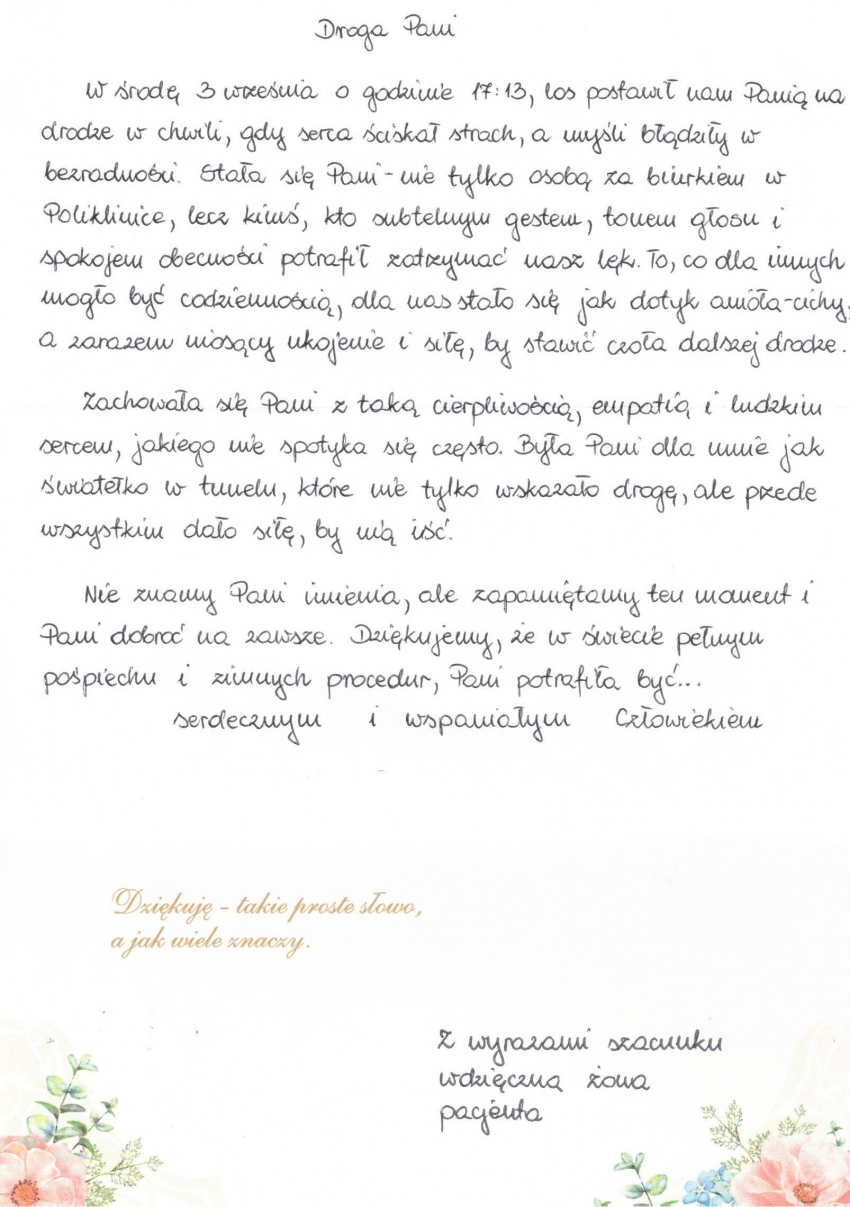 Droga Pani
W środę 3 września o godzinie 17:13, los postawił nam Panią na
drodze w chwili, gdy serca ściskał strach, a myśli błądziły w
bezradności. Stała się Pani - nie tylko osobą za biurkiem w
Poliklinice, lecz kimś, kto subtelnym gestem, tonem głosu i
spokojem obecności potrafił zatrzymać nasz lęk. To, co dla innych
mogło być codziennością, dla nas stało się jak dotyk anioła-cichy,
a zarazem niosący ukojenie i siłę, by stawić czoła dalszej drodze.
Zachowała się Pani z taką cierpliwością, empatią i ludzkim
sercem, jakiego nie spotyka się często. Była Pani dla mnie jak
światełko w tunelu, które nie tylko wskazało drogę, ale przede
wszystkim dało siłę, by nią iść.
Nie znamy Pani imienia, ale zapamiętamy ten moment i
Pani dobroć na zawsze. Dziękujemy, że w świecie pełnym
pośpiechu i zimnych procedur, Pani potrafiła być...
serdecznym i wspaniałym Człowiekiem
Dziękuję - takie proste słowo,
a jak wiele znaczy.
Z wyrazami szacunku
wdzięczna żona
pacjenta